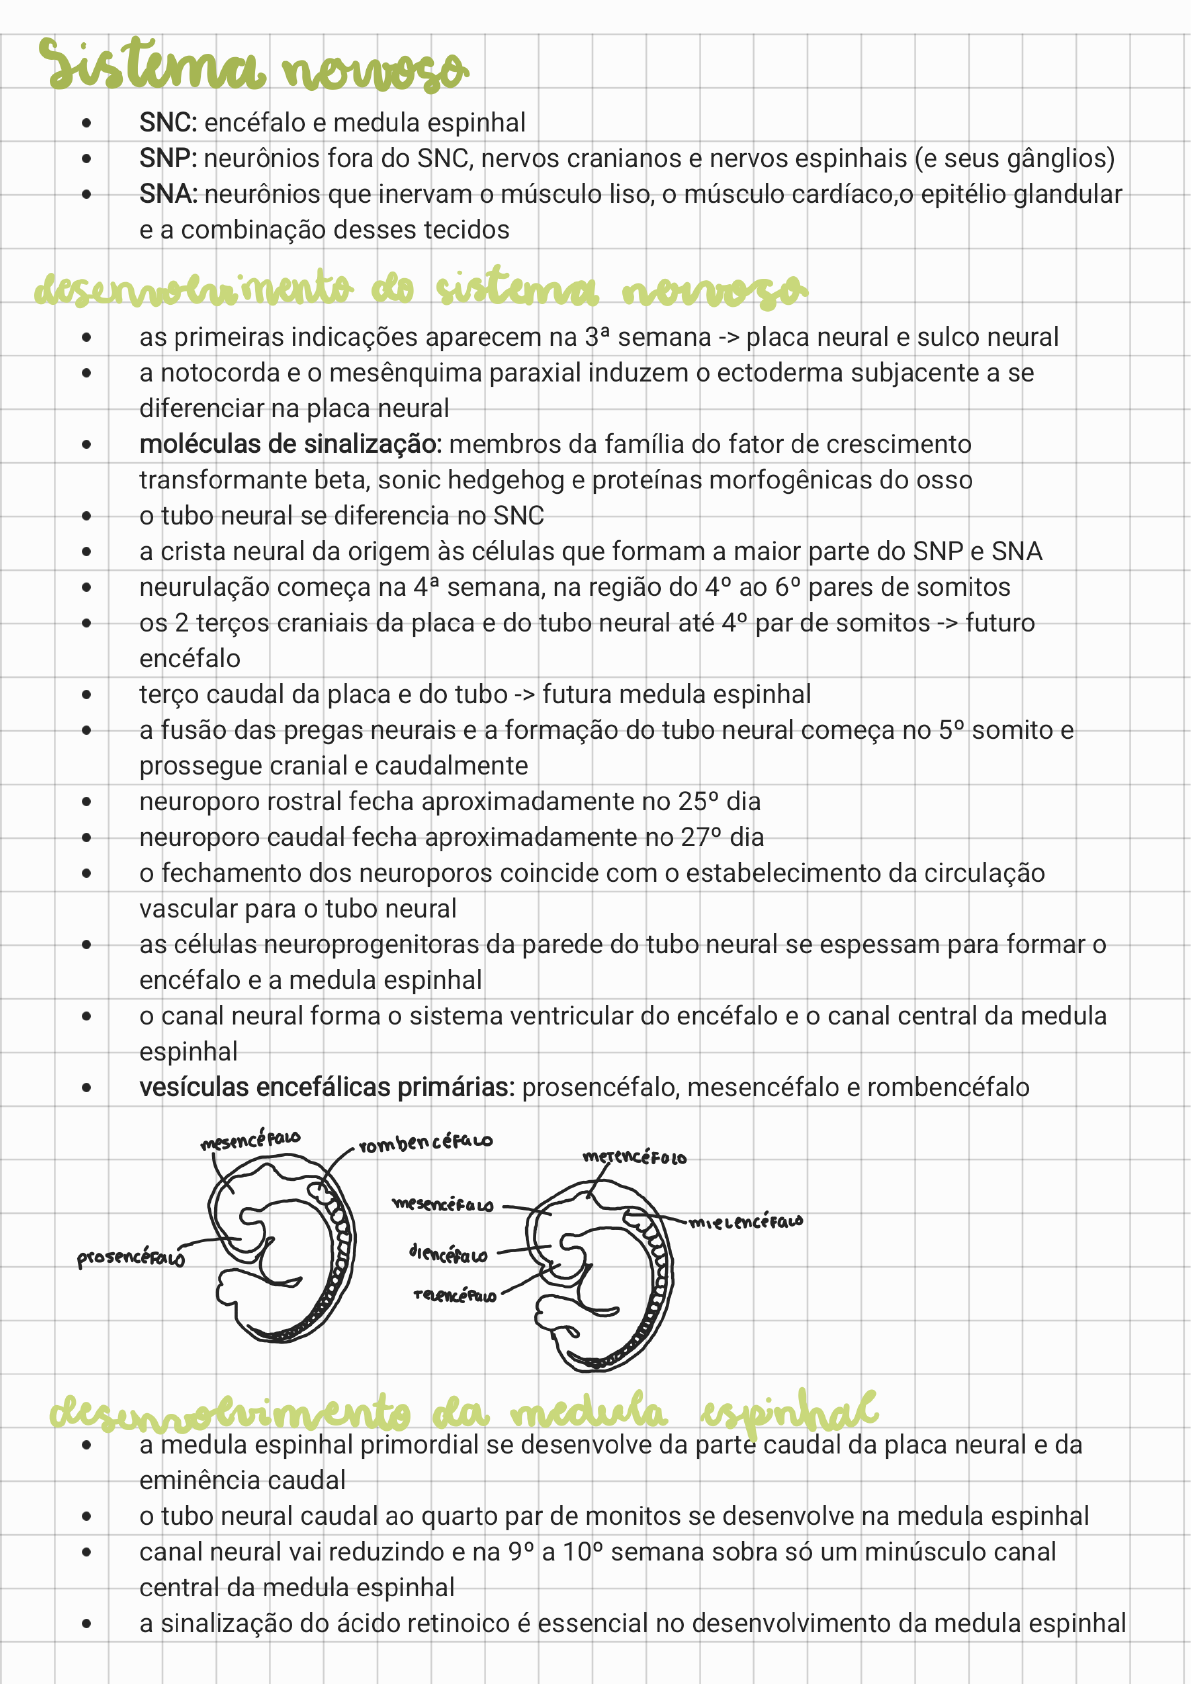 Sistema nervoso
• SNC: encéfalo e medula espinhal
• SNP: neurônios fora do SNC, nervos cranianos e nervos espinhais (e seus gânglios)
• SNA: neurônios que inervam o músculo liso, o músculo cardíaco,o epitélio glandular
e a combinação desses tecidos
desenvolvimento do sistema nervoso
• as primeiras indicações aparecem na 3ª semana -> placa neural e sulco neural
• a notocorda e o mesênquima paraxial induzem o ectoderma subjacente a se
diferenciar na placa neural
• moléculas de sinalização: membros da família do fator de crescimento
transformante beta, sonic hedgehog e proteínas morfogênicas do osso
• o tubo neural se diferencia no SNC
• a crista neural da origem às células que formam a maior parte do SNP e SNA
• neurulação começa na 4ª semana, na região do 4º ao 6º pares de somitos
• os 2 terços craniais da placa e do tubo neural até 4º par de somitos -> futuro
encéfalo
• terço caudal da placa e do tubo -> futura medula espinhal
• a fusão das pregas neurais e a formação do tubo neural começa no 5º somito e
prossegue cranial e caudalmente
• neuroporo rostral fecha aproximadamente no 25º dia
• neuroporo caudal fecha aproximadamente no 27º dia
• o fechamento dos neuroporos coincide com o estabelecimento da circulação
vascular para o tubo neural
• as células neuroprogenitoras da parede do tubo neural se espessam para formar o
encéfalo e a medula espinhal
• o canal neural forma o sistema ventricular do encéfalo e o canal central da medula
espinhal
• vesículas encefálicas primárias: prosencéfalo, mesencéfalo e rombencéfalo
mesencéfalo
rombencéfalo
prosencéfalo
metencéfalo
mesencéfalo
mielencéfalo
diencéfalo
telencéfalo
desenvolvimento da medula espinhal
• a medula espinhal primordial se desenvolve da parte caudal da placa neural e da
eminência caudal
• o tubo neural caudal ao quarto par de monitos se desenvolve na medula espinhal
• canal neural vai reduzindo e na 9º a 10º semana sobra só um minúsculo canal
central da medula espinhal
• a sinalização do ácido retinoico é essencial no desenvolvimento da medula espinhal